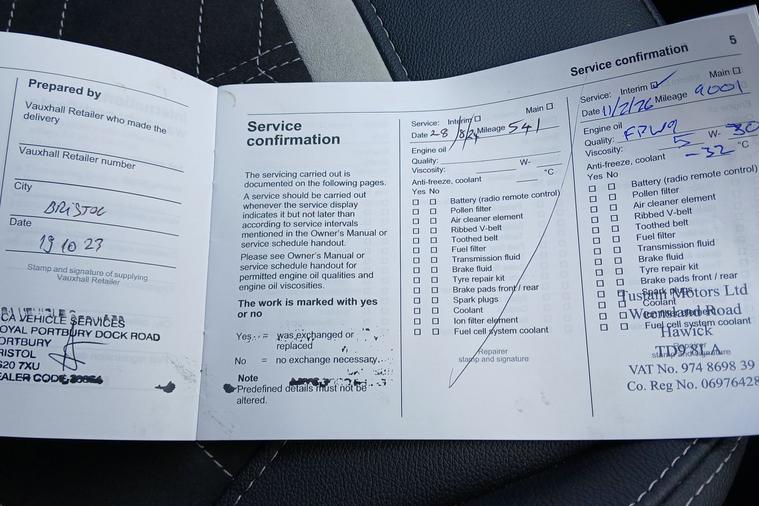 Prepared by
Vauxhall Retailer who made the
delivery
Vauxhall Retailer number
City
BRISTOL
Date
19 10 23
Stamp and signature of supplying
Vauxhall Retailer
CA VEHICLE SERVICES
OYAL PORTBURY DOCK ROAD
ORTBURY
RISTOL
S20 7XU
EALER CODE
Service
confirmation
The servicing carried out is
documented on the following pages.
A service should be carried out
whenever the service display
indicates it but not later than
according to service intervals
mentioned in the Owner's Manual or
service schedule handout.
Please see Owner's Manual or
service schedule handout for
permitted engine oil qualities and
engine oil viscosities.
The work is marked with yes
or no
Yes = was exchanged or
replaced
No = no exchange necessary.
Note
Predefined details must not be
altered.
Service: Interim Main
Date 28/8/24 Mileage 541
Engine oil
Quality:
Viscosity: W-
Anti-freeze, coolant °C
Yes No
Battery (radio remote control)
Pollen filter
Air cleaner element
Ribbed V-belt
Toothed belt
Fuel filter
Transmission fluid
Brake fluid
Tyre repair kit
Brake pads front / rear
Spark plugs
Coolant
Ion filter element
Fuel cell system coolant
Repairer
stamp and signature
Service confirmation 5
Service: Interim Main
Date 11/2/26 Mileage 9001
Engine oil
Quality:
Viscosity: 5 W- 30
Anti-freeze, coolant -32 °C
Yes No
Battery (radio remote control)
Pollen filter
Air cleaner element
Ribbed V-belt
Toothed belt
Fuel filter
Transmission fluid
Brake fluid
Tyre repair kit
Brake pads front / rear
Spark plugs
Coolant
Fuel cell system coolant
Motors Ltd
Road
Hawick
TD9
stamp and signature
VAT No. 974 8698 39
Co. Reg No. 06976428